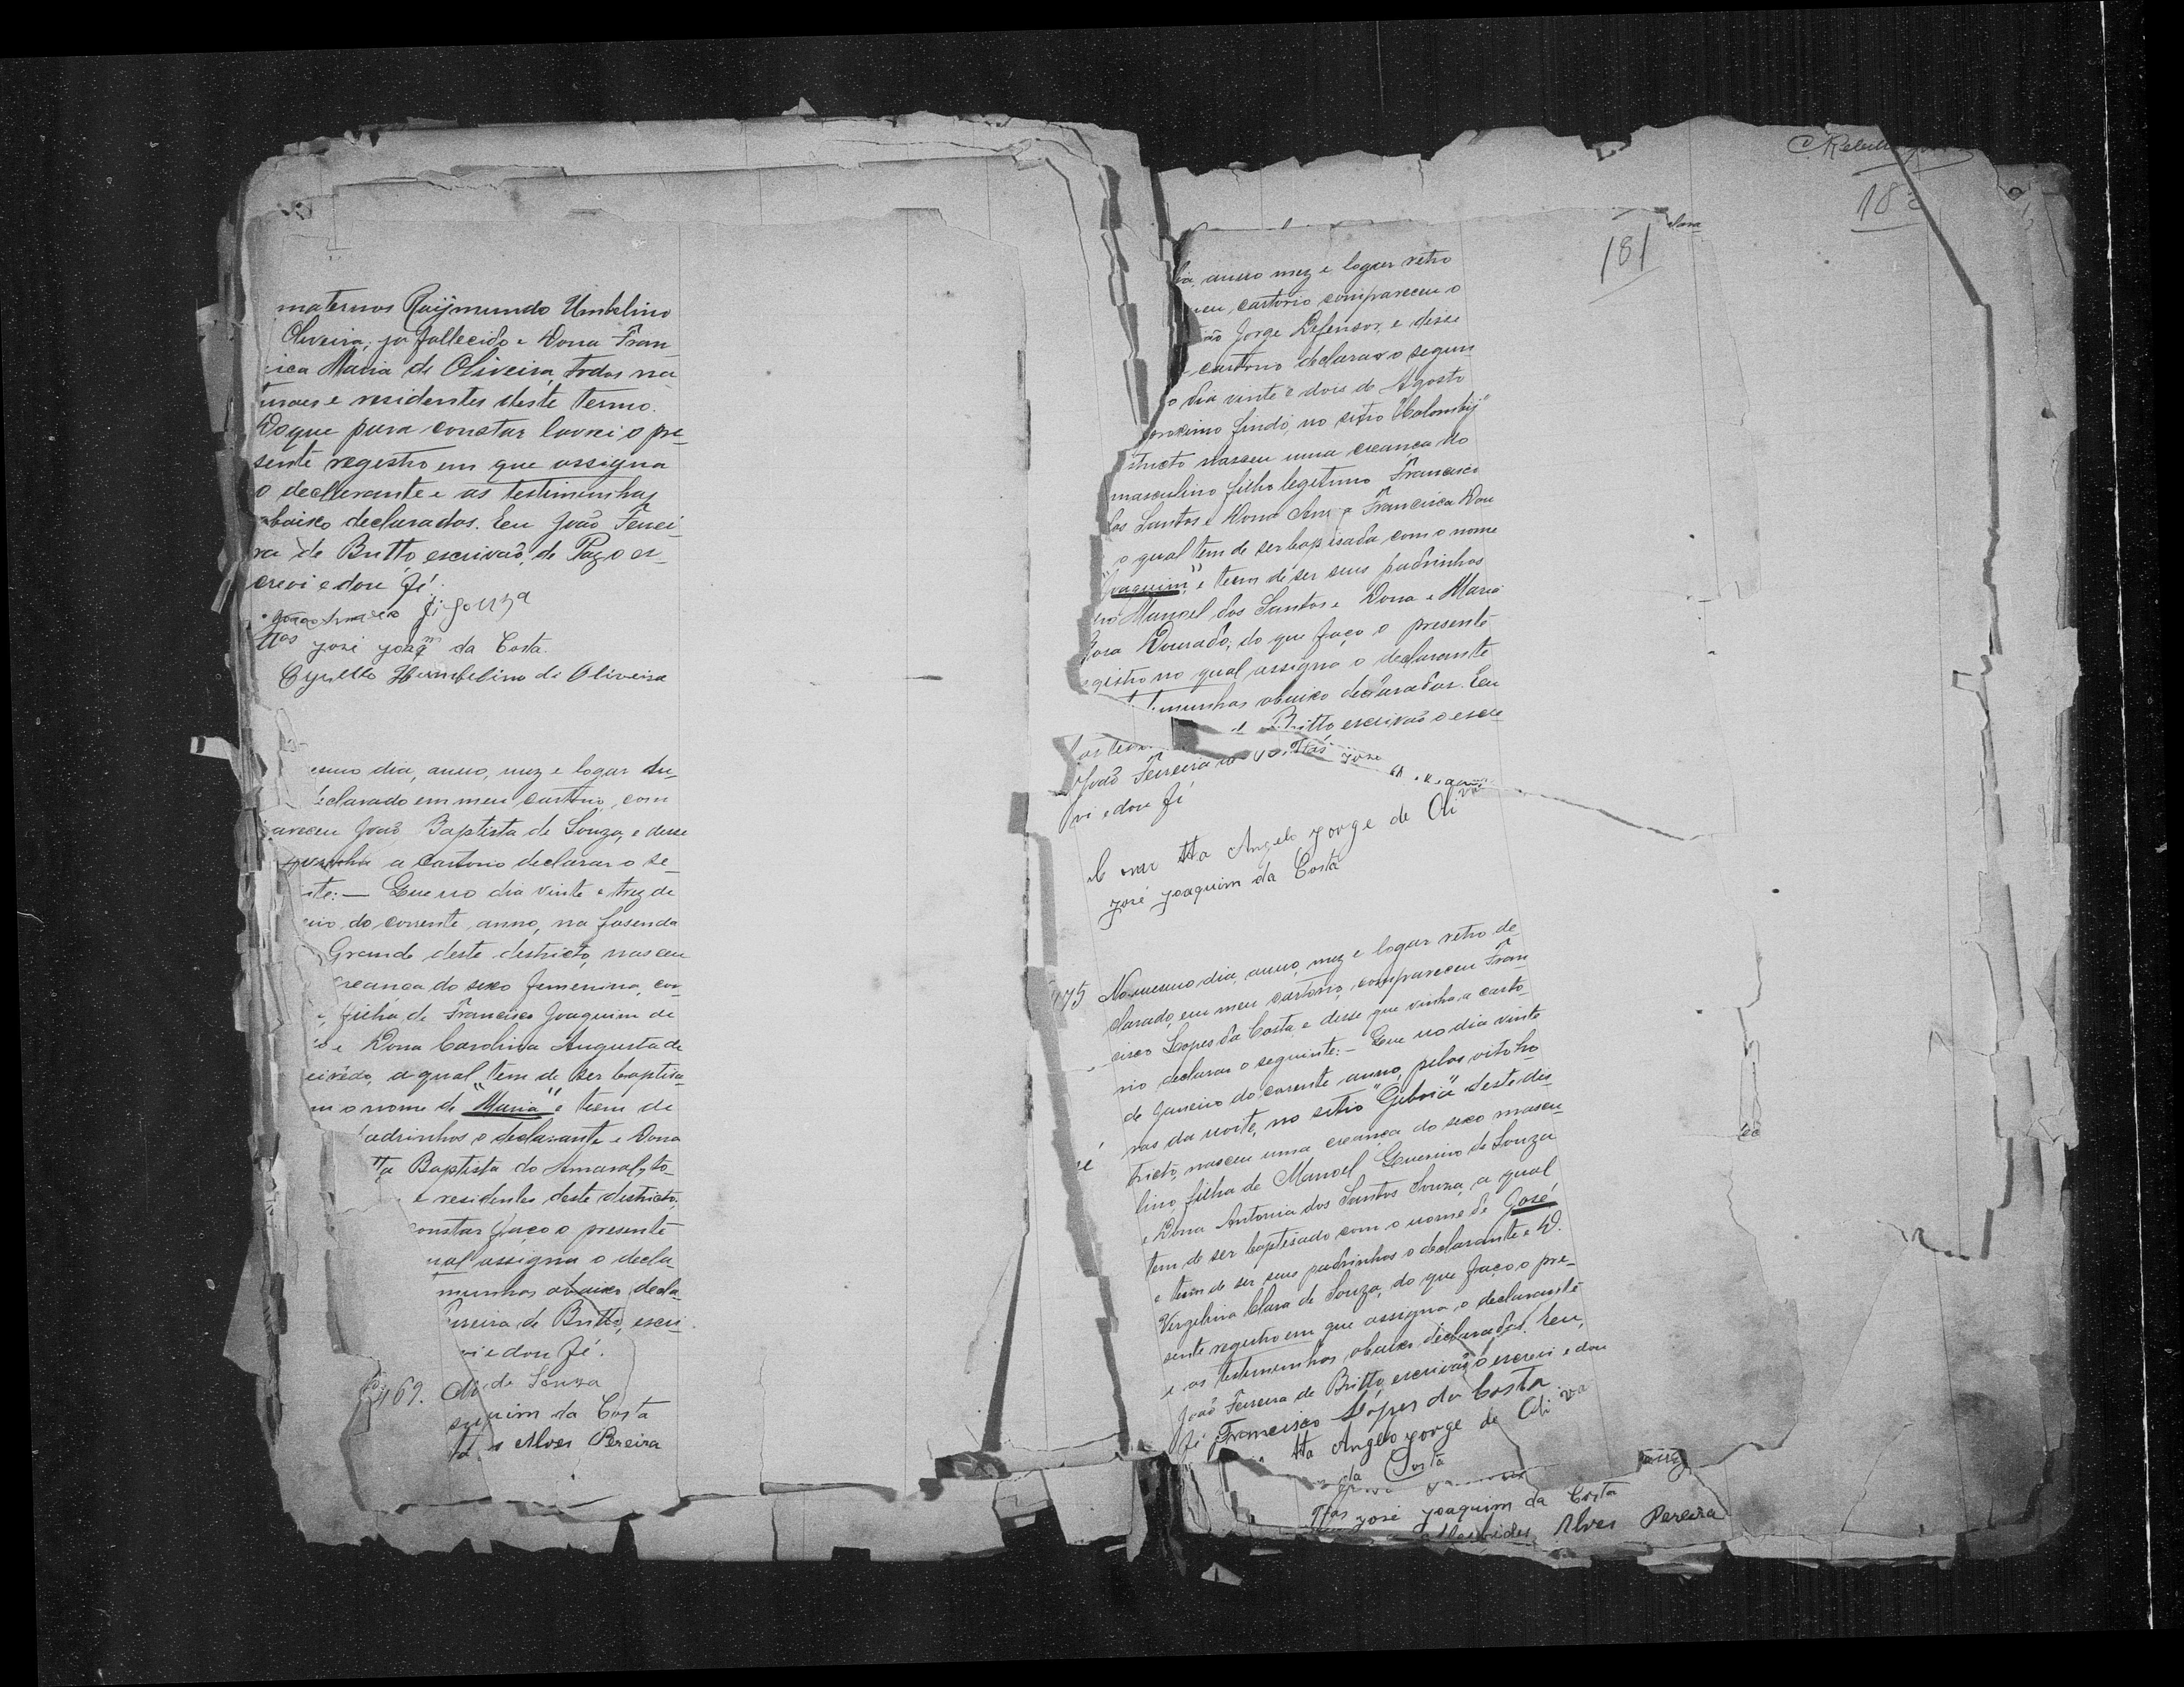 maternos Raÿmundo Umbelino
Oliveira, ja fallecido e Dona Fran-
ica Maria de Oliveira, todos na
turaes e residentes deste termo.
Do que para constar lavrei o pre-
sente registro em que assigna
o declerante e as testiminhas
abaixo declarados. Eeu João Ferrei-
ra de Britto, escrivaõ, de Paz o es-
crevi e dou fé.
de Souza
Ttas José Joaqm da Costa.
Humbelino de Oliveira
esmo dia, anno, mez e logar
eclarado em meu cartorio, com
pareceu Joaõ Baptista de Souza, e desse
que vinha a cartorio declarar o se-
nte:— Que no dia vinte e trez de
eiro do corrente anno, na fasenda
Grande deste destricto, nasceu
creanca do sexo femenino, cor
filha de Francisco Joaquim de
e Dona Carolina Augusta de
eirêdo, a qual tem de ser baptisa-
m o nome de "Maria" e teem de
adrinhos o declarante e Dona
Baptista do Amaral, to-
e residentes deste destricto,
onstar faço o presente
ual assigna o decla-
munhas abaixo decla-
rreira de Britto, escri-
vi e dou fé.
469. de Souza
quim da Costa
Alves Pereira
C. Rebello
181
dia, anno mez e logar retro
meu cartorio compareceu o
Jorge Defensor, e disse
cartorio declarar o seguin
o dia vinte e dois de Agosto
proximo findo, no sitio
stricto nasceu uma creança do
masculino filho legitimo Francisco
dos Santos e Dona Anna Francisca Dou
o qual tem de ser baptisada com o nome
"Joaquim", e teem de ser seus padrinhos
Manoel dos Santos e Dona Maria
Rosa Dourado, do que faço o presente
egistro no qual assigna o declarante
munhas abaixo declaradas. Eeu
Britto, escrivaõ o escre
Joaõ Ferreira
vi e dou fé
Angelo Jorge de Oliva
José Joaquim da Costa
475 No mesmo dia, anno, mez e logar retro de-
clarado, em meu cartorio, compareceu Fran
cisco Lopes da Costa e desse que vinha a carto-
rio declarar o seguinte:— Que no dia vinte
de Janeiro do corrente anno, pelas oito ho
ras da noite, no sitio "Giboia" deste dis-
tricto, nasceu uma creança do sexo mascu-
lino, filha de Manoel Guerino de Souza
e Dona Antonia dos Santos Souza, a qual
tem de ser baptisado com o nome de José
e teem de ser seus padrinhos o declarante e D.
Vergelina Clara de Souza, do que faço o pre-
sente registro em que assigna o declarante
e as testemunhas abaixo declaradas. Eeu,
Joaõ Ferreira de Britto, escrivaõ o escrevi e dou
fé Francisco Lopes da Costa
tta Angelo Jorge de Oliva
da Costa
Ttas José Joaquim da Costa
Alves Pereira